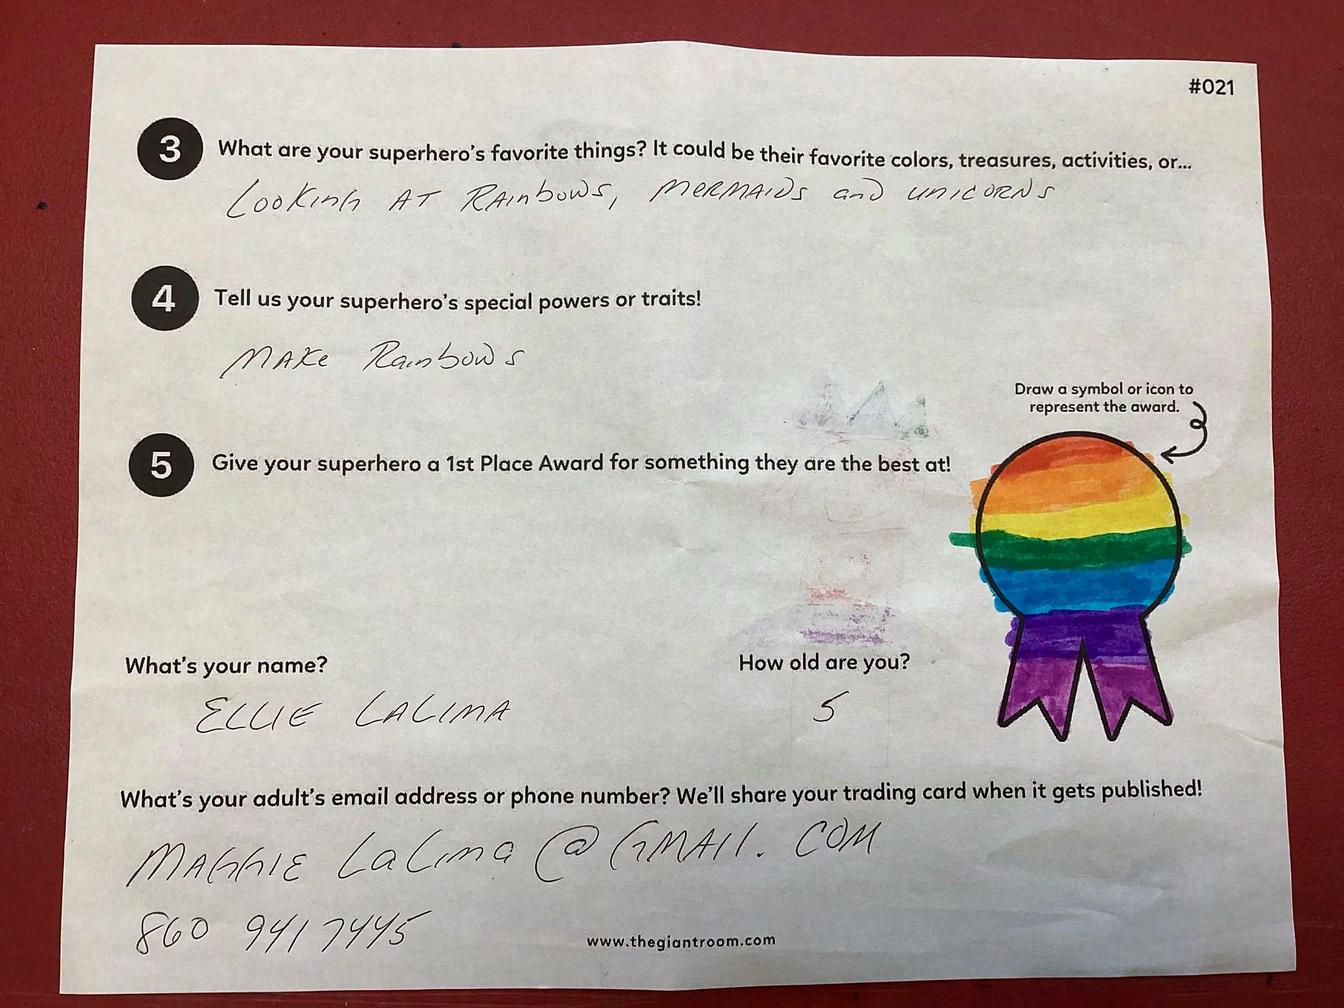 #021
3 What are your superhero's favorite things? It could be their favorite colors, treasures, activities, or...
Looking AT RAinbows, MERMAIDS and UNICORNS
4 Tell us your superhero's special powers or traits!
MAKe Rainbows
Draw a symbol or icon to
represent the award.
5 Give your superhero a 1st Place Award for something they are the best at!
What's your name?
ELLIE LALIMA
How old are you?
5
What's your adult's email address or phone number? We'll share your trading card when it gets published!
MAGGIE LaLima @ GMAIl. COM
860 941 7445
www.thegiantroom.com